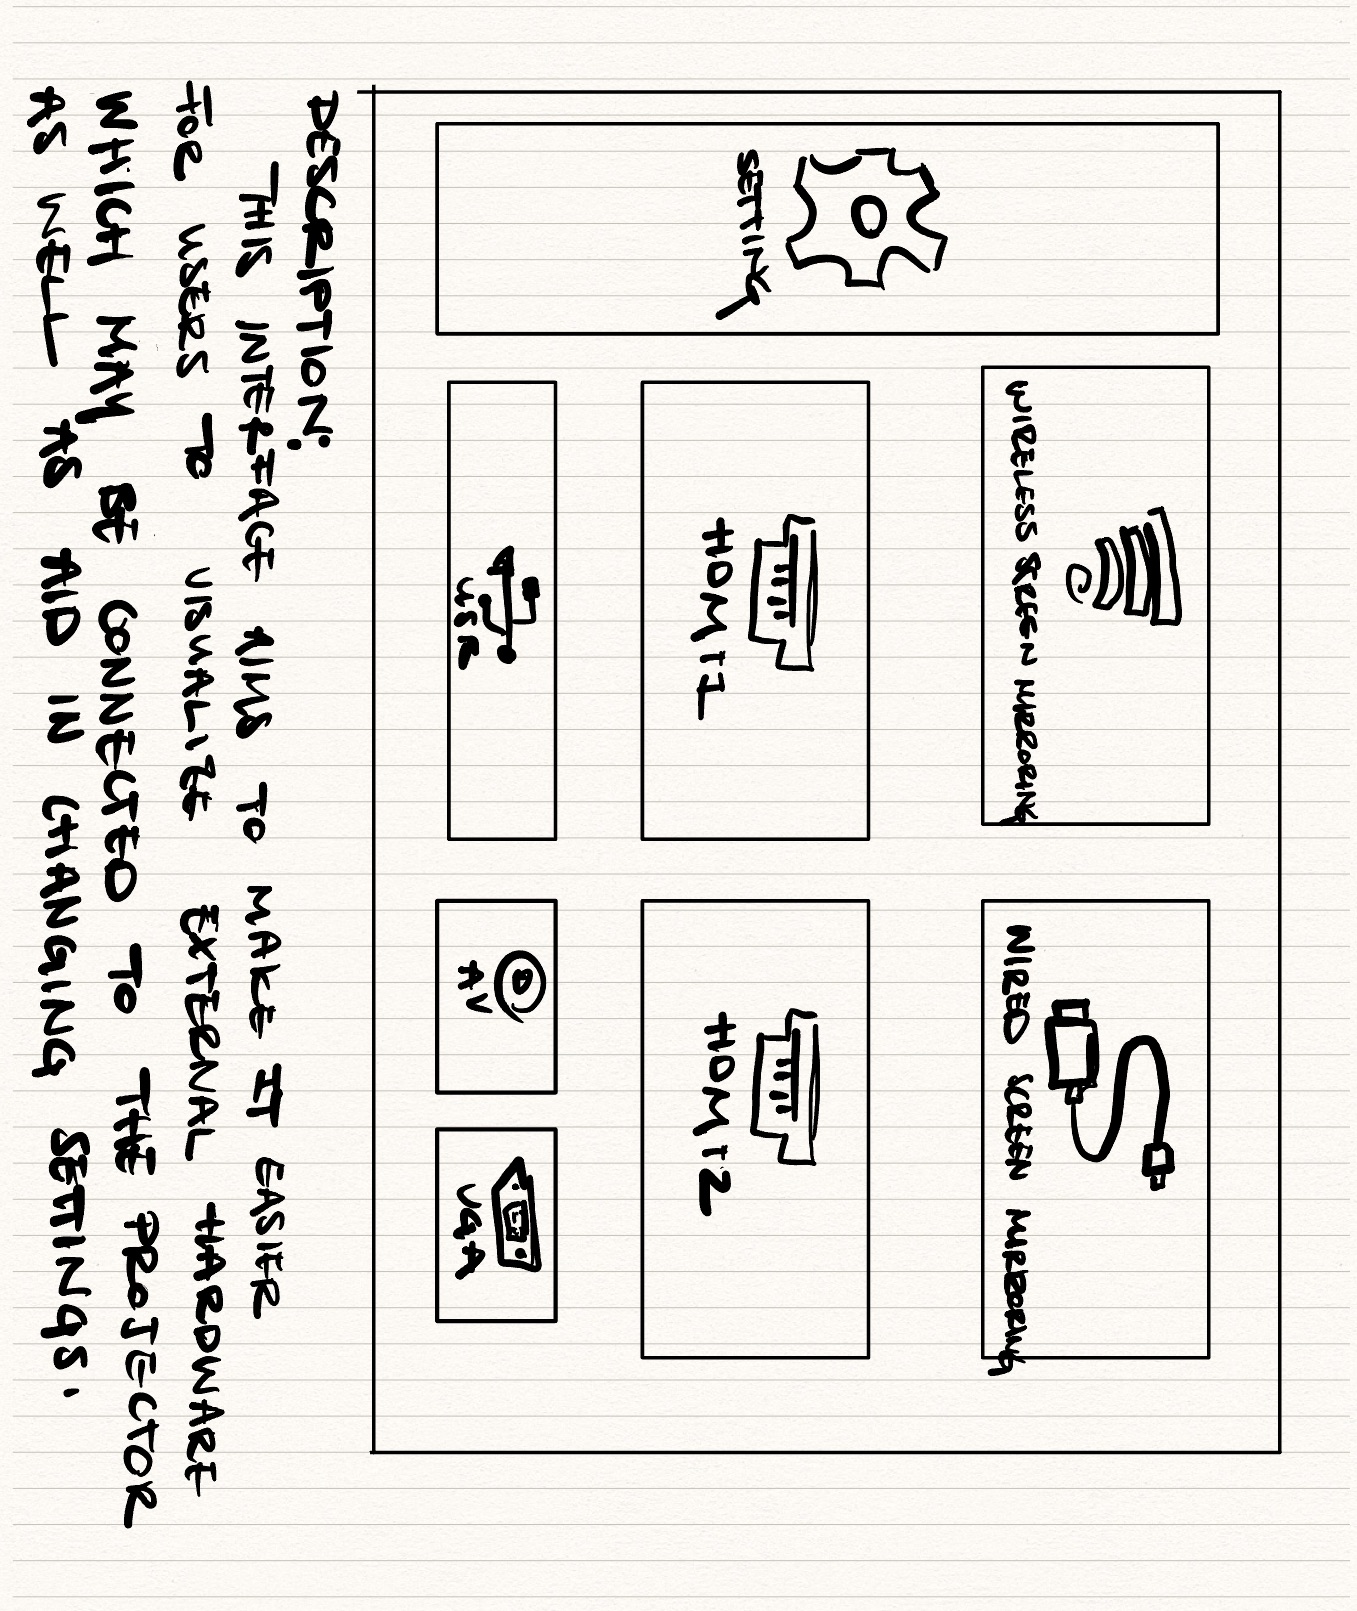 WIRELESS SCREEN MIRRORING
WIRED SCREEN MIRRORING
SETTING
HDMI1
HDMI2
USB
AV
VGA
DESCRIPTION:
THIS INTERFACE AIMS TO MAKE IT EASIER
FOR USERS TO VISUALIZE EXTERNAL HARDWARE
WHICH MAY BE CONNECTED TO THE PROJECTOR
AS WELL AS AID IN CHANGING SETTINGS.